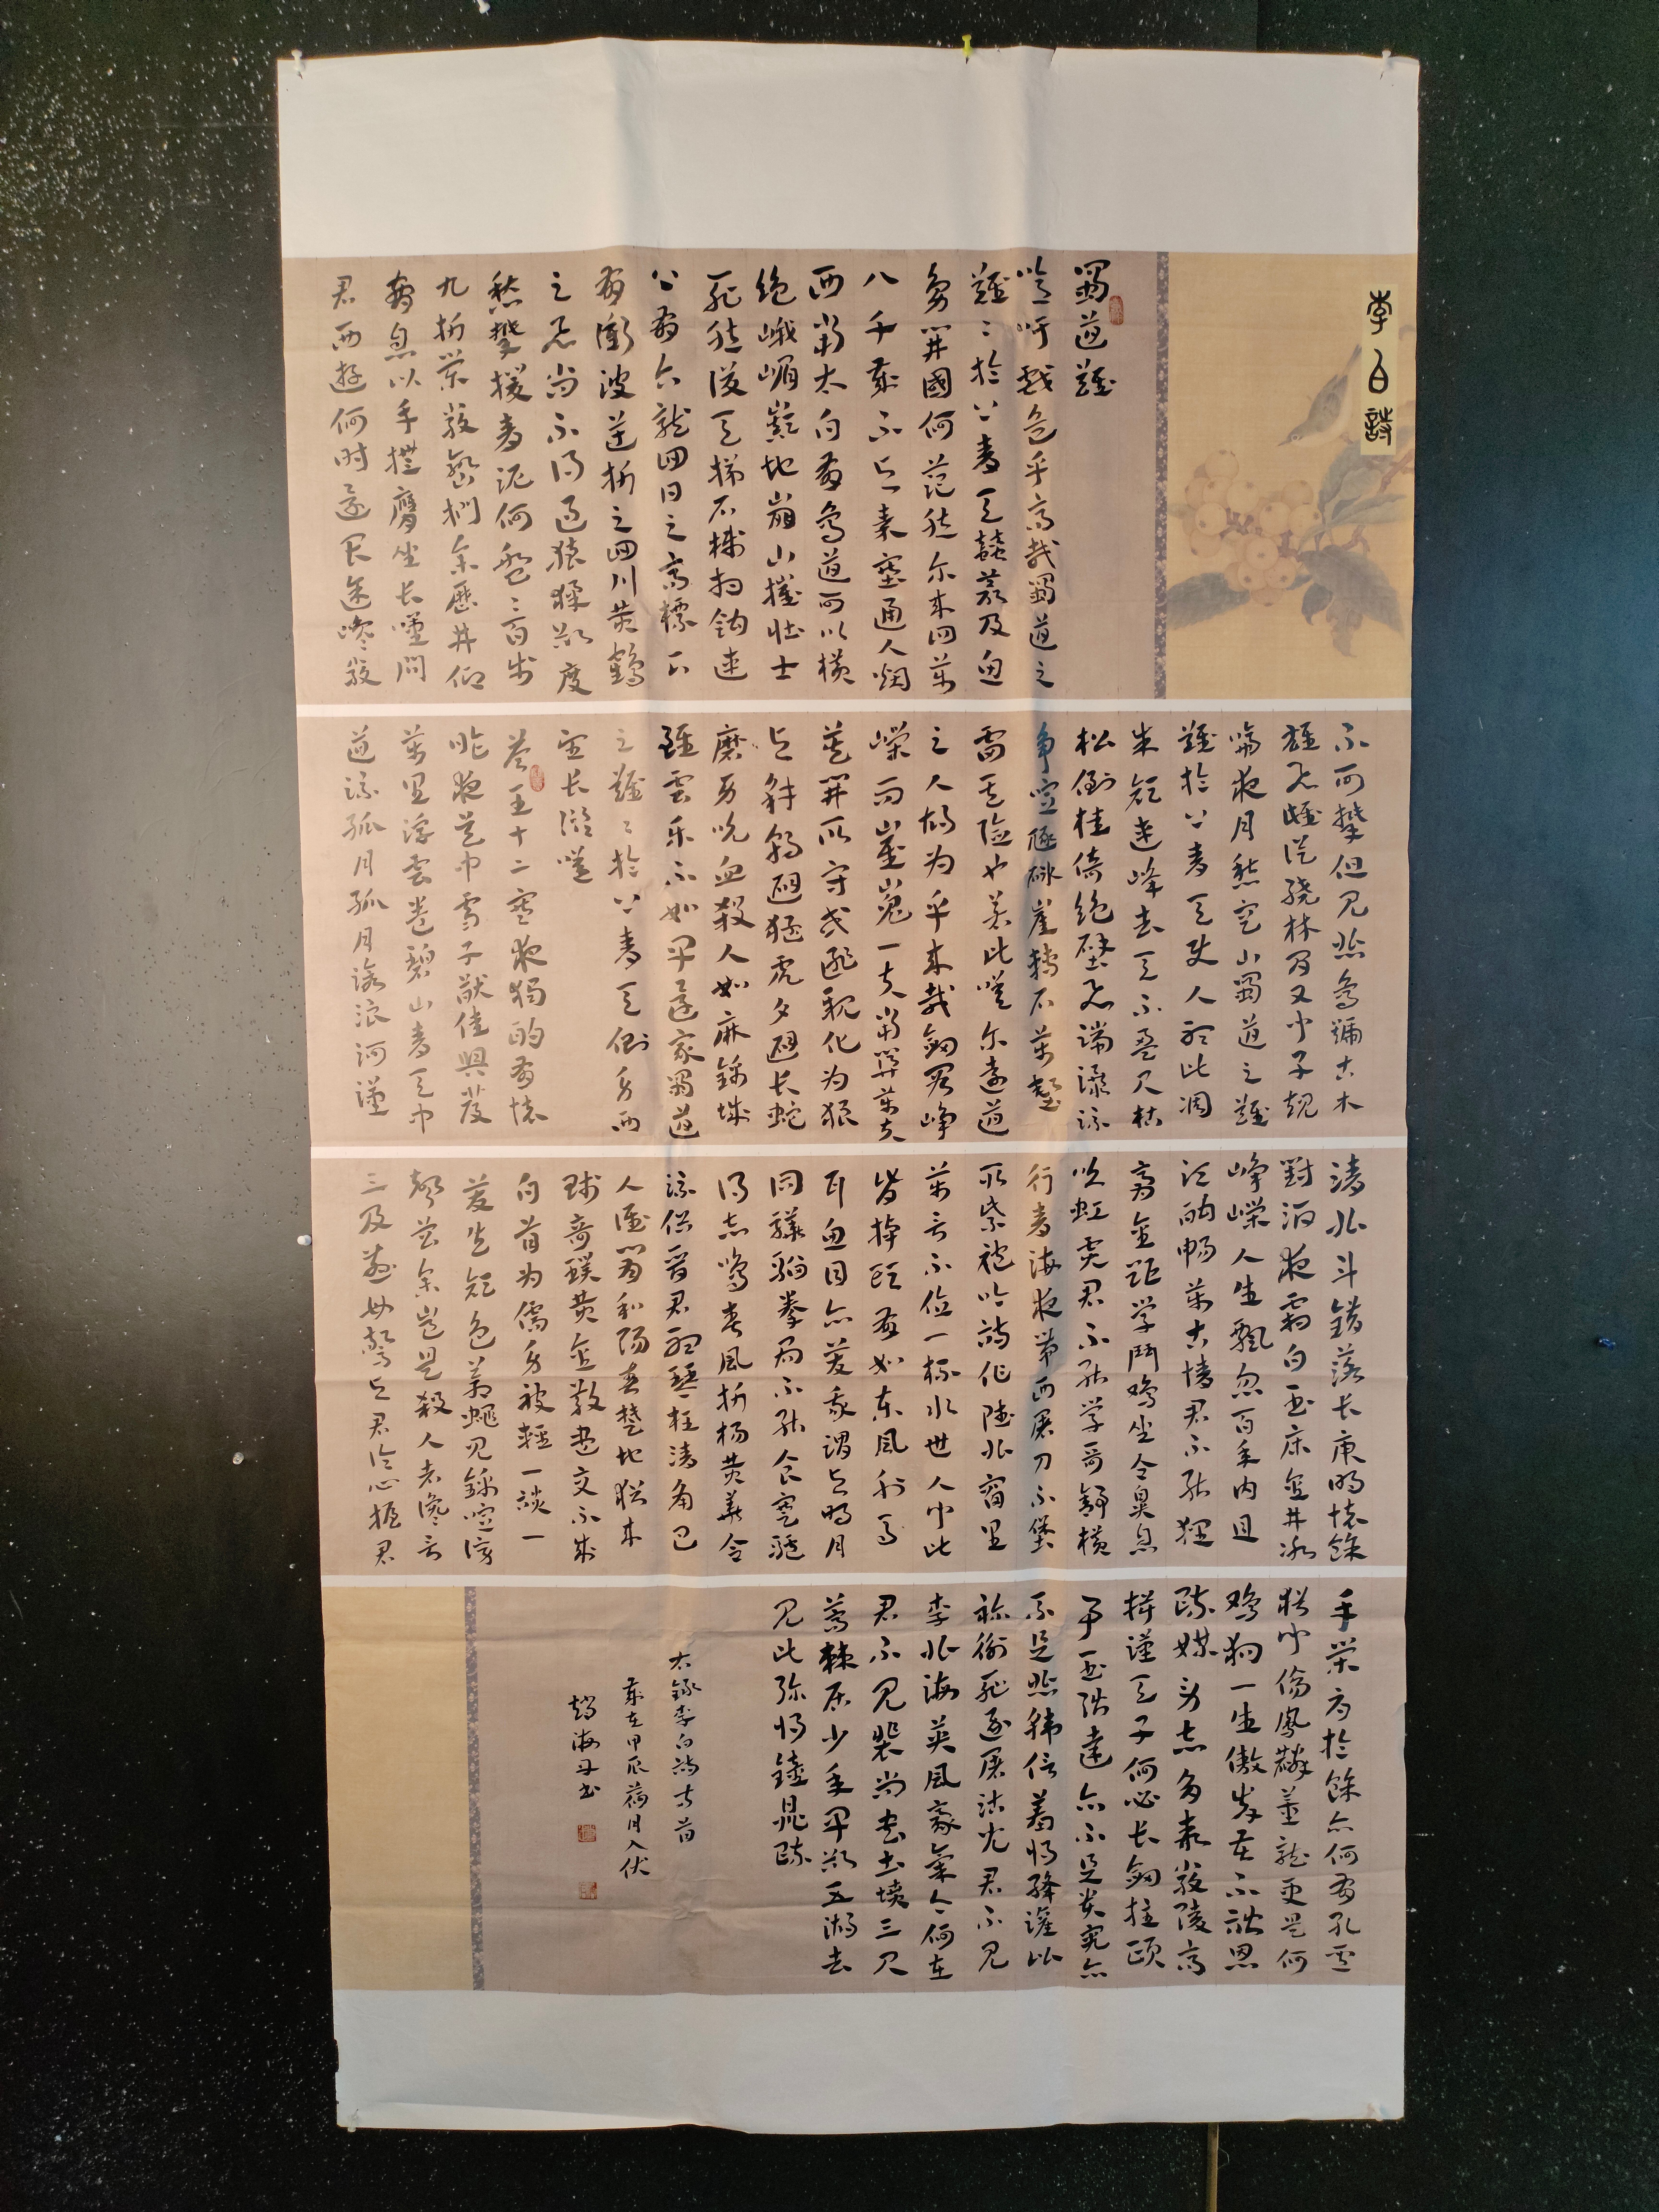 李白詩
蜀道難
噫吁戲危乎高哉蜀道之
難〻於上青天蠶叢及魚
鳧開國何茫然尔来四萬
八千歲不與秦塞通人烟
西當太白有鳥道可以橫
絶峨嵋巔地崩山摧壯士
死然後天梯石棧相鈎連
上有六龍回日之高標下
有衝波逆折之回川黄鶴
之飛尚不得過猿猱欲度
愁攀援青泥何盤〻百步
九折縈巖巒捫參歷井仰
脅息以手撫膺坐长嘆問
君西遊何时還畏途巉巖
不可攀但見悲鳥號古木
雄飛雌從繞林間又聞子規
啼夜月愁空山蜀道之難
難於上青天使人聽此凋
朱顔連峰去天不盈尺枯
松倒挂倚絶壁飛湍瀑流
争喧豗砯崖轉石萬壑
雷其險也若此嗟尔遠道
之人胡为乎来哉劍閣崢
嶸而崔嵬一夫當関萬夫
莫開所守或匪親化为狼
與豺朝避猛虎夕避长蛇
磨牙吮血殺人如麻錦城
雖雲乐不如早還家蜀道
之難〻於上青天側身西
望长咨嗟
答王十二寒夜獨酌有懷
昨夜吴中雪子猷佳興發
萬里浮雲卷碧山青天中
道流孤月孤月滄浪河漢
清北斗錯落长庚明懷餘
對酒夜霜白玉床金井冰
崢嶸人生飄忽百年内且
須酣畅萬古情君不能狸
膏金距学鬥鷄坐令鼻息
吹虹霓君不能学哥舒橫
行青海夜带西屠刀石堡
取紫袍吟詩作陸北窗里
萬言不值一杯水世人聞此
皆掉頭有如東風射馬
耳魚目亦笑我謂與明月
同驊騮拳局不能食蹇驢
得志鳴春風折楊黄華合
流俗晉君聽琴枉清角巴
人誰肯和陽春楚地猶来
賤奇璞黄金散盡交不成
白首为儒身被輕一談一
笑失顔色蒼蠅貝錦喧謗
聲曾參豈是殺人者讒言
三及慈母驚與君論心握君
手榮辱於餘亦何有孔聖
猶聞傷鳳麟董龍更是何
鷄狗一生傲岸苦不諧恩
疏媒勞志多乖嚴陵高
揖漢天子何必长劍拄頤
事玉階達亦不足貴窮亦
不足悲韓信羞將絳灌比
祢衡耻逐屠沽兒君不見
李北海英風豪氣今何在
君不見裴尚書土墳三尺
蒿棘居少年早欲五湖去
見此弥將鐘鼎疏
右録李白詩两首
歲在甲辰荷月入伏
趙海丹書